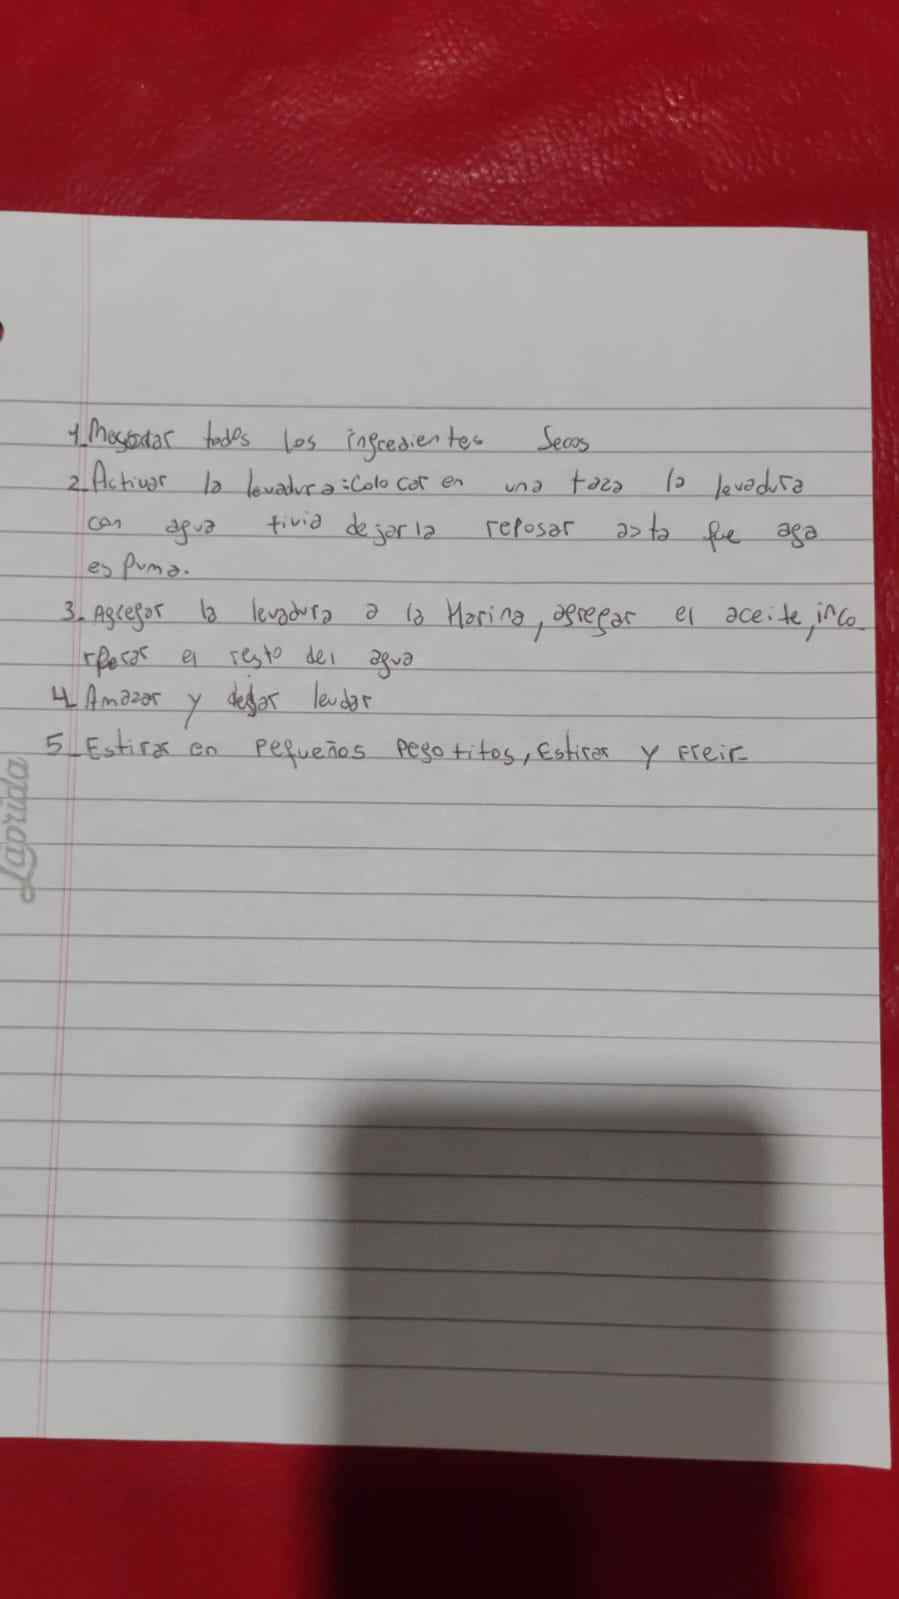 1_ todos los ingredientes Secos
2_Activar la levadura:Colocar en una taza la levadura
con agua tivia dejarla reposar asta que aga
espuma.
3_Agregar la levadura a la Harina, agregar el aceite, inco_
rporar el resto del agua
4_Amazar y dejar leudar
5_Estirar en pequeños pegotitos, Estirar y Freir_
Laprida